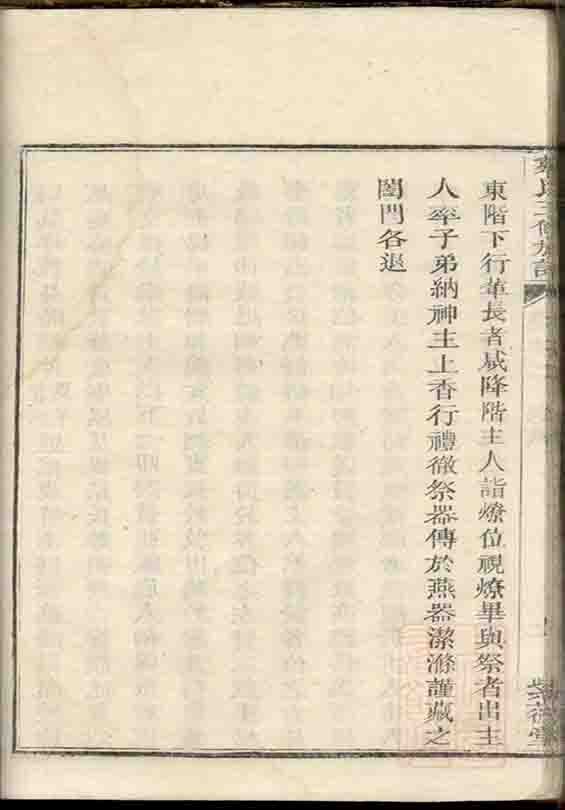 東階下行輩長者咸降階主人詣燎位視燎畢與祭者出主
人率子弟納神主上香行禮徹祭器傳於燕器潔滌謹藏之
闔門各退